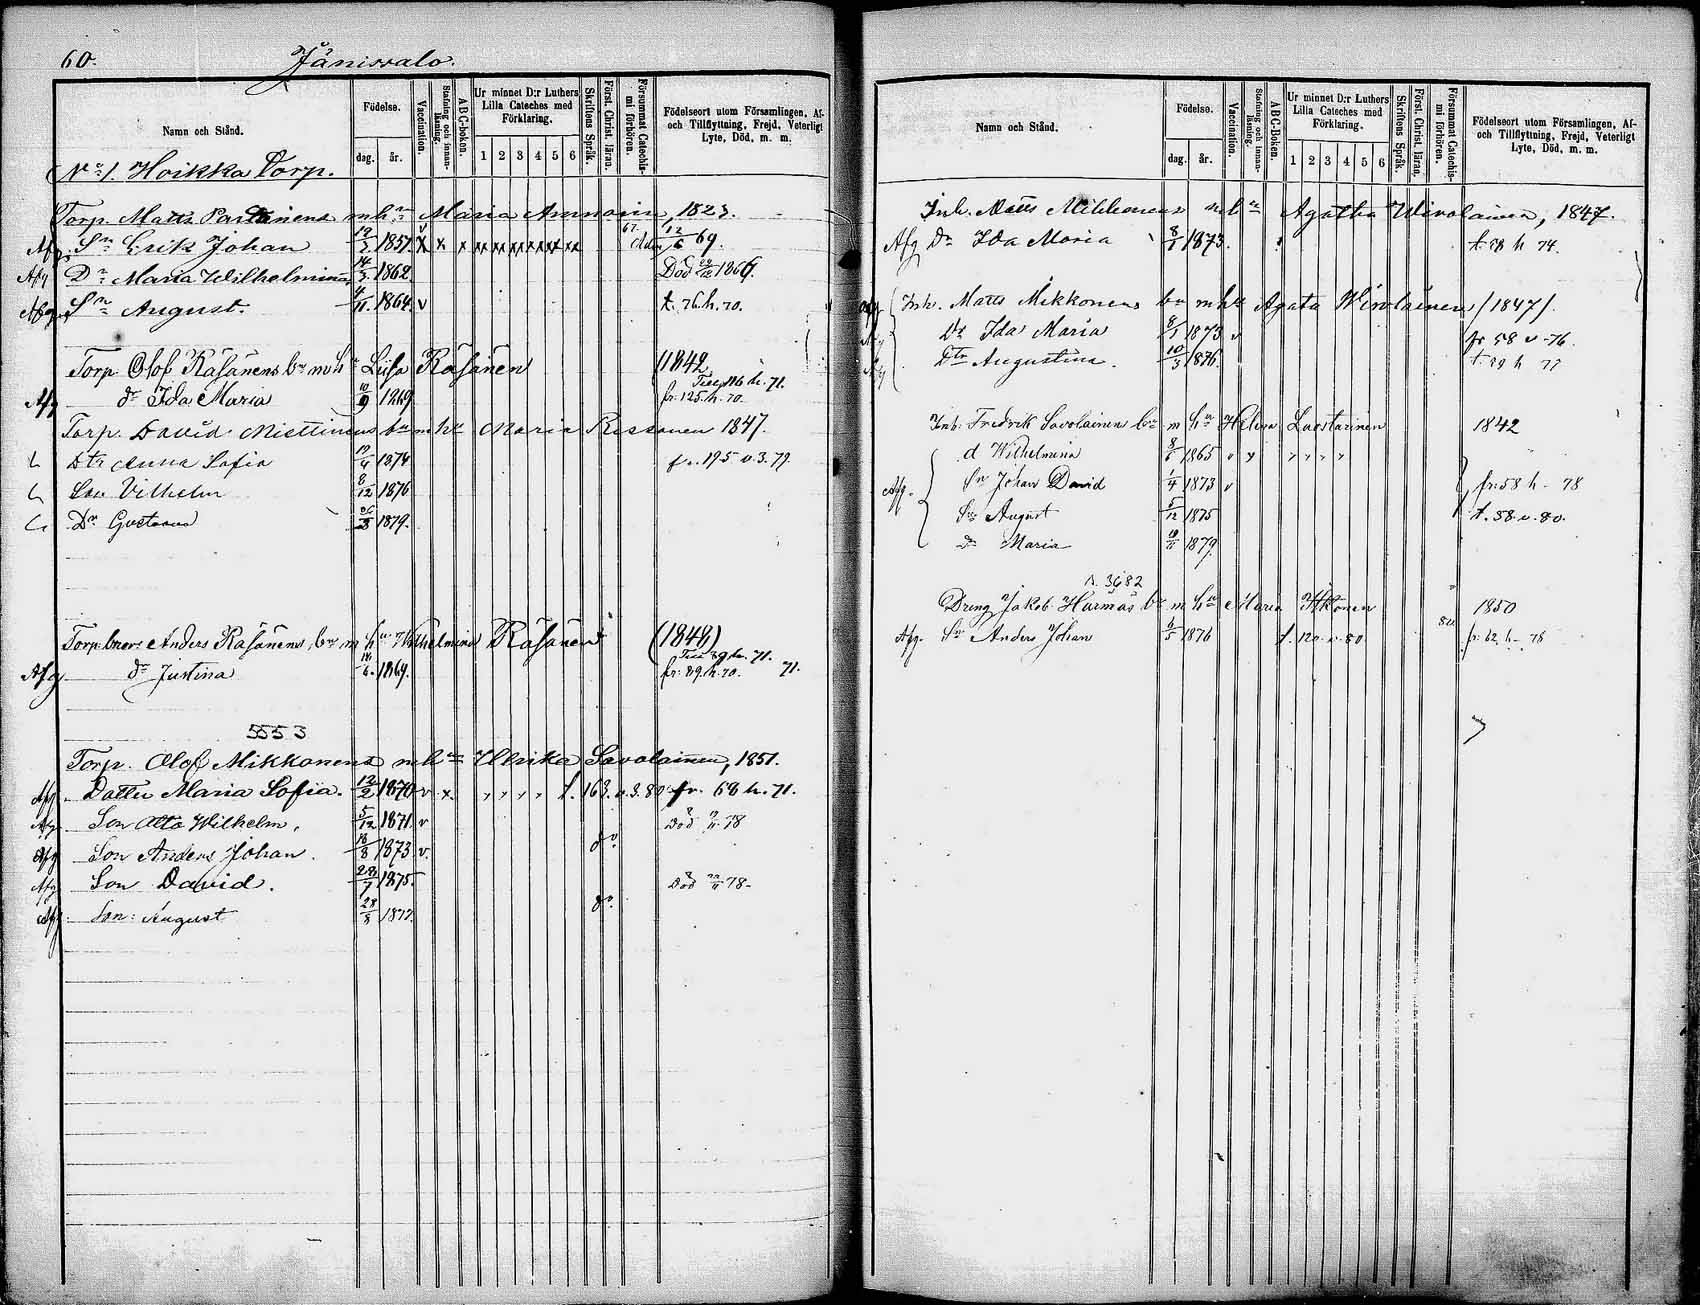 60.
Jänissalo.
Namn och Stånd.
Födelse.
dag. år.
Vaccination.
Stafning och innan-läsning.
ABC-boken.
Ur minnet D:r Luthers Lilla Cateches med Förklaring.
1 2 3 4 5 6
Skriftens Språk.
Först. Christ. läran.
Försummat Catechis-mi förhören.
Födelseort utom Församlingen, Af- och Tillflyttning, Frejd, Veterligt Lyte, Död, m. m.
No 1. Hoikka Torp.
Torp. Matts Partanens m hu Maria Ammoin, 1823.
Afg Sn Erik Johan 12/3 1851. v x x x 67. 12/6 69.
Afg Dr Maria Wilhelmina 14/3 1862. Död 1866.
Afg Sn August. 4/11. 1864. v t. 76. h. 70.
Torp. Olof Räsänens bn m hu Lusa Räsänen (1842
Afg dr Ida Maria 10/9 1869 fr. 125. h. 70. Till 116 h. 71.
Torp. David Miettinens bn m hu Maria Rissanen 1847.
Dtr Anna Sofia 19/4 1874 fr. 195 v. 3. 79.
Son Vilhelm 8/12 1876
Dr Gustava 1879.
Torp:bror: Anders Räsänens, bn m hu Wilhelmina Räsänen (1848)
Till 89 h. 71.
Afg dr Justina 1869. fr. 89. h. 70. 71.
5553
Torp. Olof Mikkonens m hu Ulrika Savolainen, 1851.
Afg. Dotter Maria Sofia. 12/2 1870 v x. t. 163. v. 3. 80 fr. 68 h. 71.
Afg Son Otto Wilhelm. 5/12 1871. v Död 78
Afg Son Anders Johan. 16/8 1873 v. do
Afg Son David. 28/7 1875. Död 78-
Afg. Son: August 28/8 1877. do.
Namn och Stånd.
Födelse.
dag. år.
Vaccination.
Stafning och innan-läsning.
ABC-boken.
Ur minnet D:r Luthers Lilla Cateches med Förklaring.
1 2 3 4 5 6
Skriftens Språk.
Först. Christ. läran.
Försummat Catechis-mi förhören.
Födelseort utom Församlingen, Af- och Tillflyttning, Frejd, Veterligt Lyte, Död, m. m.
Inh. Matts Mikkonens m hu Agatha Wirolainen, 1847.
Afg Dr Ida Maria 8/1 1873. t. 58 h 74.
Afg Inh. Matts Mikkonens bn m hu Agata Wirolainen /1847/.
Dr Ida Maria 8/1 1873 v fr 58 v -76.
Dtr Augustina. 10/3 1876. t. 59 h 77
Inh. Fredrik Savolainens bn m hu Helena Laostarinen 1842
d Wilhelmina 8/6 1865 v v
Afg. Sn Johan David 1/4 1873 v fr. 58 h - 78
Sn August 5/12 1875 t. 58. v. 80.
Dr Maria 1879.
N. 3682
Dreng Jakob Harmäs bn m hu Maria Itkonen 1850
Afg. Sn Anders Johan 6/5 1876 t. 120. v. 80 fr. 62. h - 78